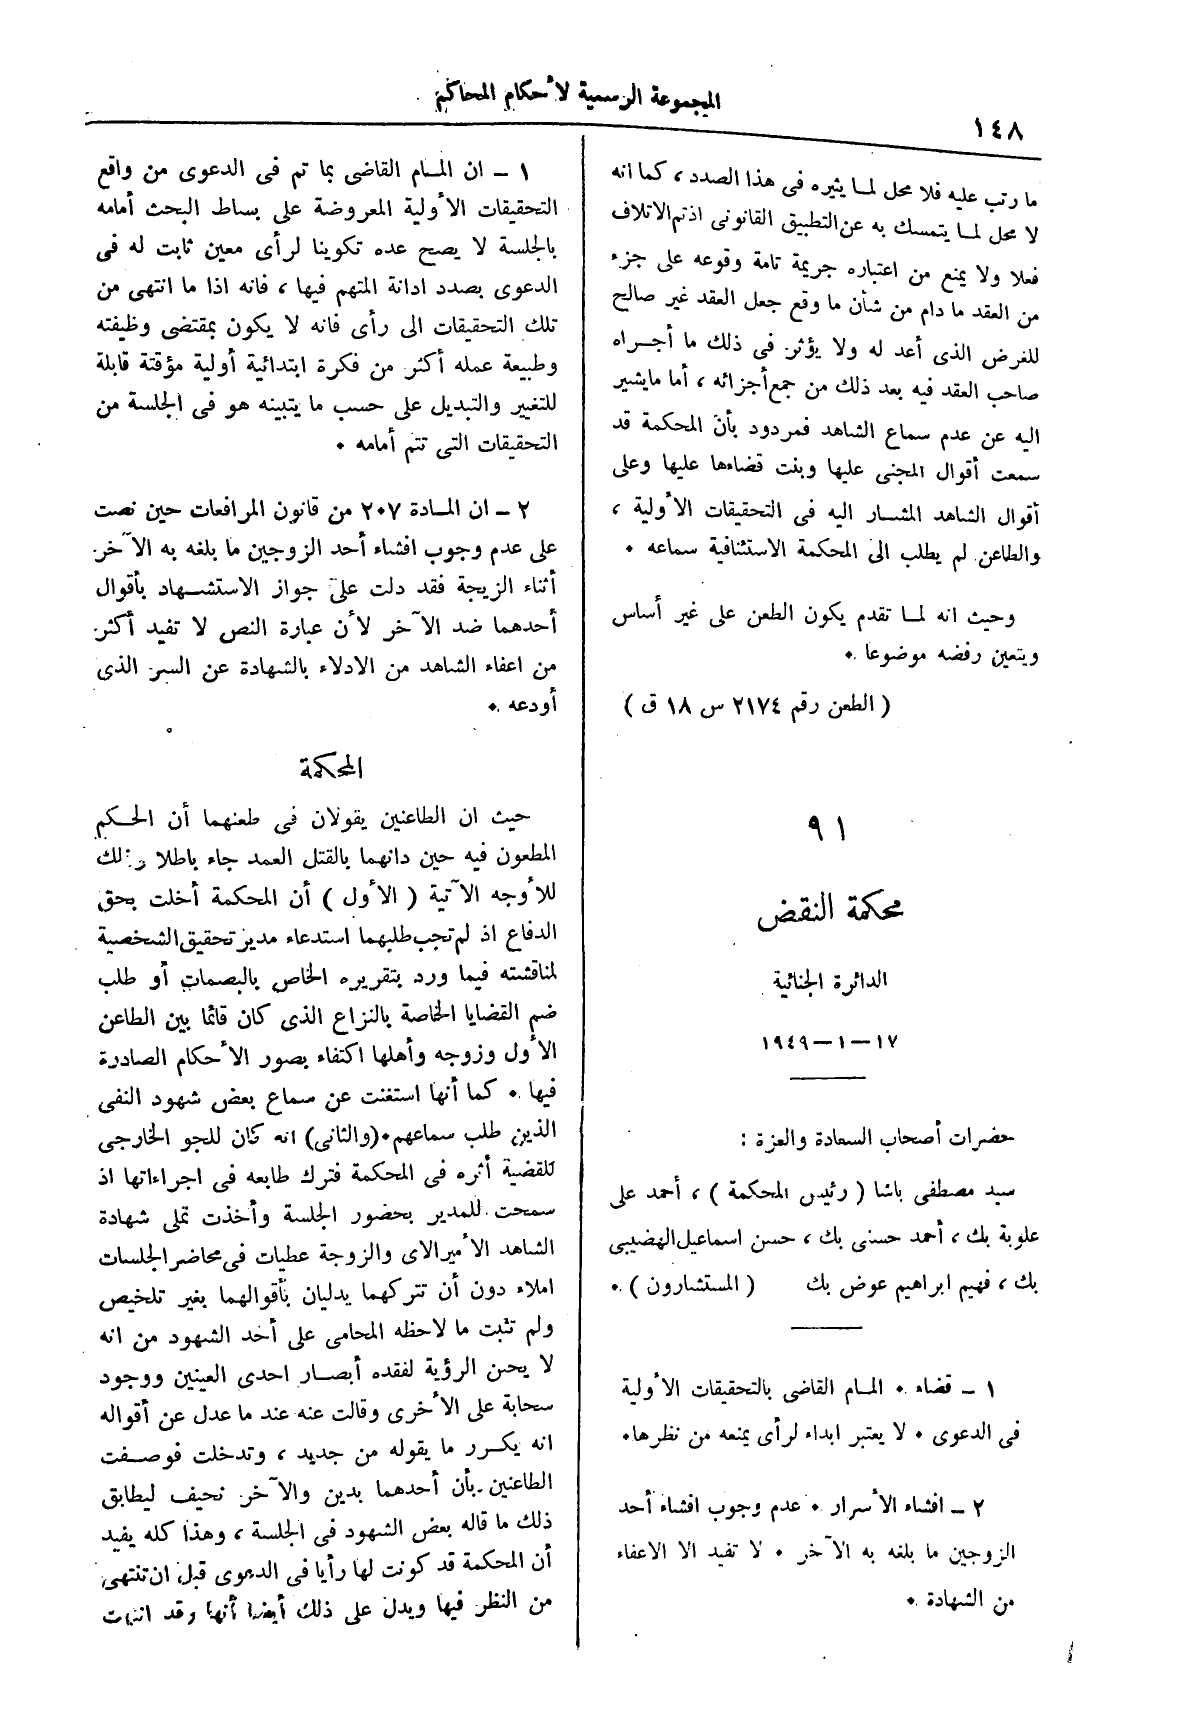 المجموعة الرسمية لأحكام المحاكم
١٤٨
ما رتب عليه فلا محل لما يثيره فى هذا الصدد ، كما انه
لا محل لما يتمسك به عن التطبيق القانونى اذ تم الاتلاف
فعلا ولا يمنع من اعتباره جريمة تامة وقوعه على جزء
من العقد ما دام من شأن ما وقع جعل العقد غير صالح
للغرض الذى أعد له ولا يؤثر فى ذلك ما أجراه
صاحب العقد فيه بعد ذلك من جمع أجزائه ، أما ما يشير
اليه عن عدم سماع الشاهد فمردود بأن المحكمة قد
سمعت أقوال المجنى عليها وبنت قضاءها عليها وعلى
أقوال الشاهد المشار اليه فى التحقيقات الأولية ،
والطاعن لم يطلب الى المحكمة الاستئنافية سماعه .
وحيث انه لما تقدم يكون الطعن على غير أساس
ويتعين رفضه موضوعا .
( الطعن رقم ٢١٧٤ س ١٨ ق )
٩١
محكمة النقض
الدائرة الجنائية
١٧ – ١ – ١٩٤٩
حضرات أصحاب السعادة والعزة :
سيد مصطفى باشا ( رئيس المحكمة ) ، أحمد على
علوبة بك ، أحمد حسنى بك ، حسن اسماعيل الهضيبى
بك ، فهيم ابراهيم عوض بك ( المستشارون ) .
١ – قضاء . المام القاضى بالتحقيقات الأولية
فى الدعوى . لا يعتبر ابداء لرأى يمنعه من نظرها .
٢ – افشاء الأسرار . عدم وجوب افشاء أحد
الزوجين ما بلغه به الآخر . لا تفيد الا الاعفاء
من الشهادة .
١ – ان المام القاضى بما تم فى الدعوى من واقع
التحقيقات الأولية المعروضة على بساط البحث أمامه
بالجلسة لا يصح عده تكوينا لرأى معين ثابت له فى
الدعوى بصدد ادانة المتهم فيها ، فانه اذا ما انتهى من
تلك التحقيقات الى رأى فانه لا يكون بمقتضى وظيفته
وطبيعة عمله أكثر من فكرة ابتدائية أولية مؤقتة قابلة
للتغيير والتبديل على حسب ما يتبينه هو فى الجلسة من
التحقيقات التى تتم أمامه .
٢ – ان المادة ٢٠٧ من قانون المرافعات حين نصت
على عدم وجوب افشاء أحد الزوجين ما بلغه به الآخر
أثناء الزيجة فقد دلت على جواز الاستشهاد بأقوال
أحدهما ضد الآخر لأن عبارة النص لا تفيد أكثر
من اعفاء الشاهد من الادلاء بالشهادة عن السر الذى
أودعه .
المحكمة
حيث ان الطاعنين يقولان فى طعنهما أن الحكم
المطعون فيه حين دانهما بالقتل العمد جاء باطلا وذلك
للأوجه الآتية ( الأول ) أن المحكمة أخلت بحق
الدفاع اذ لم تجب طلبهما استدعاء مدير تحقيق الشخصية
لمناقشته فيما ورد بتقريره الخاص بالبصمات أو طلب
ضم القضايا الخاصة بالنزاع الذى كان قائما بين الطاعن
الأول وزوجه وأهلها اكتفاء بصور الأحكام الصادرة
فيها . كما أنها استغنت عن سماع بعض شهود النفى
الذين طلب سماعهم . (والثانى) انه كان للجو الخارجى
للقضية أثره فى المحكمة فترك طابعه فى اجراءاتها اذ
سمحت للمدير بحضور الجلسة وأخذت تملى شهادة
الشاهد الأميرالاى والزوجة عطيات فى محاضر الجلسات
املاء دون أن تتركهما يدليان بأقوالهما بغير تلخيص
ولم تثبت ما لاحظه المحامى على أحد الشهود من انه
لا يحسن الرؤية لفقده أبصار احدى العينين ووجود
سحابة على الأخرى وقالت عنه عند ما عدل عن أقواله
انه يكرر ما يقوله من جديد ، وتدخلت فوصفت
الطاعنين بأن أحدهما بدين والآخر نحيف ليطابق
ذلك ما قاله بعض الشهود فى الجلسة ، وهذا كله يفيد
أن المحكمة قد كونت لها رأيا فى الدعوى قبل ان تنتهى
من النظر فيها ويدل على ذلك أيضا أنها وقد انتهت